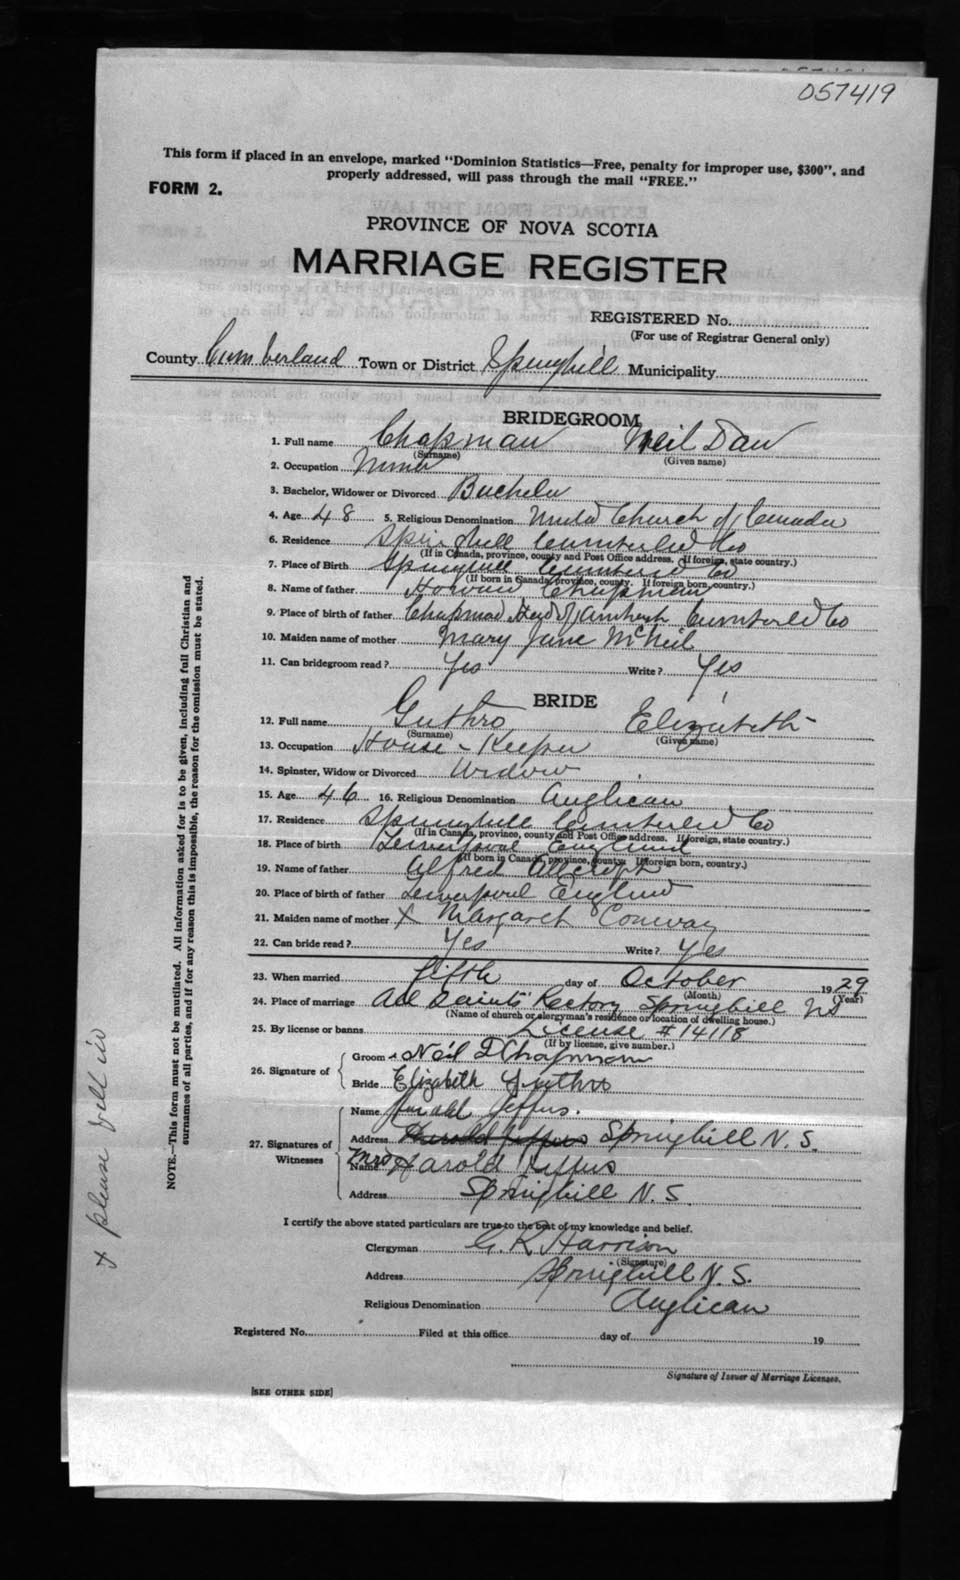 057419
This form if placed in an envelope, marked "Dominion Statistics—Free, penalty for improper use, $300", and
properly addressed, will pass through the mail "FREE."
FORM 2.
PROVINCE OF NOVA SCOTIA
MARRIAGE REGISTER
REGISTERED No.
(For use of Registrar General only)
County Cumberland Town or District Springhill Municipality
BRIDEGROOM
1. Full name Chapman Neil Daw
(Surname) (Given name)
2. Occupation Miner
3. Bachelor, Widower or Divorced Bachelor
4. Age 48 5. Religious Denomination United Church of Canada
6. Residence Springhill Cumberland Co
(If in Canada, province, county and Post Office address. If foreign, state country.)
7. Place of Birth Springhill Cumberland Co
(If born in Canada, province, county. If foreign born, country.)
8. Name of father Chapman
9. Place of birth of father Chapman Amherst Cumberland Co
10. Maiden name of mother Mary Jane McNeil
11. Can bridegroom read? Yes Write? Yes
BRIDE
12. Full name Guthro Elizabeth
(Surname) (Given name)
13. Occupation House-Keeper
14. Spinster, Widow or Divorced Widow
15. Age 46 16. Religious Denomination Anglican
17. Residence Springhill Cumberland Co
(If in Canada, province, county and Post Office address. If foreign, state country.)
18. Place of birth Liverpool England
(If born in Canada, province, county. If foreign born, country.)
19. Name of father Alfred Allcroft
20. Place of birth of father Liverpool England
21. Maiden name of mother x Margaret Conway
22. Can bride read? Yes Write? Yes
23. When married fifth day of October 1929
(Month) (Year)
24. Place of marriage All Saints' Rectory Springhill NS
(Name of church or clergyman's residence or location of dwelling house.)
25. By license or banns License # 14118
(If by license, give number.)
26. Signature of
Groom Neil D Chapman
Bride Elizabeth Guthro
27. Signatures of Witnesses
Name Jeffers.
Address Harold Jeffers Springhill N. S.
Name Mrs Harold Jeffers
Address Springhill N. S.
I certify the above stated particulars are true to the best of my knowledge and belief.
Clergyman G. K Harrison
(Signature)
Address Springhill N. S.
Religious Denomination Anglican
Registered No. Filed at this office day of 19
Signature of Issuer of Marriage Licenses.
[SEE OTHER SIDE]
NOTE.—This form must not be mutilated. All information asked for is to be given, including full Christian and
surnames of all parties, and if for any reason this is impossible, the reason for the omission must be stated.
x please fill in